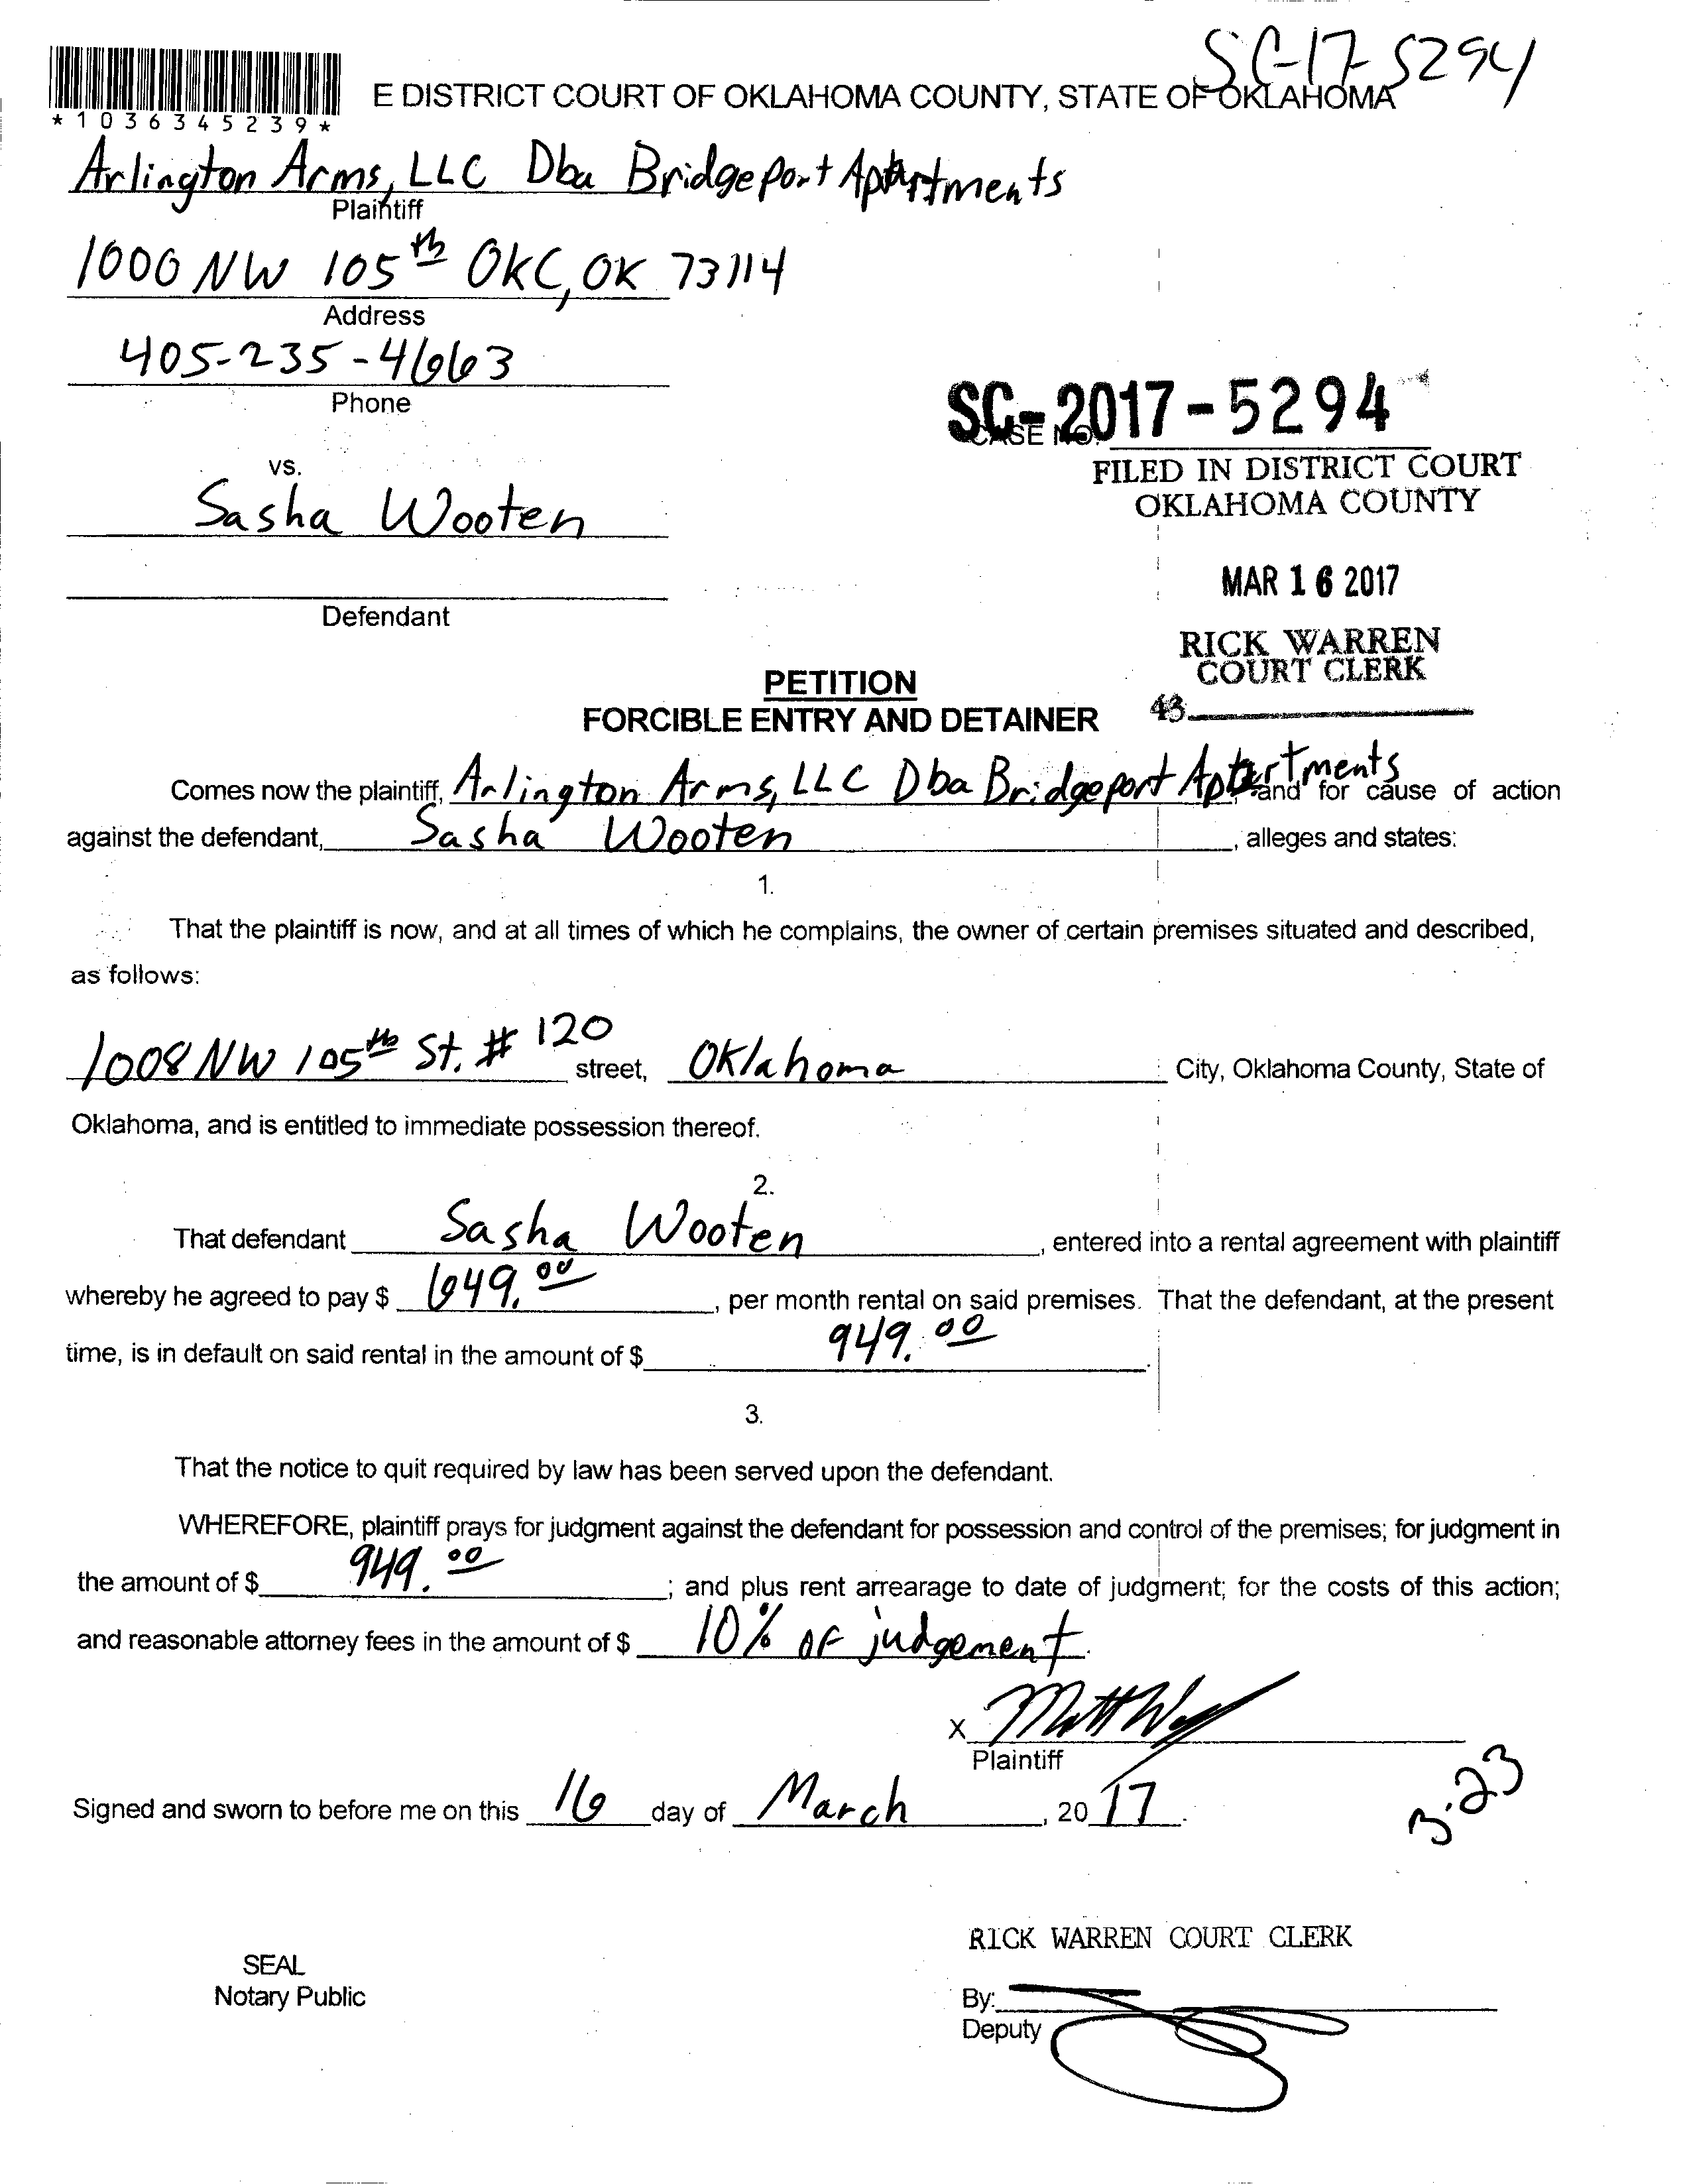 SC-17-5294
E DISTRICT COURT OF OKLAHOMA COUNTY, STATE OF OKLAHOMA
*1036345239*
Arlington Arms, LLC Dba Bridgeport Apartments
Plaintiff
1000 NW 105th OKC, OK 73114
Address
405-235-4663
Phone
SC-2017-5294
CASE NO.
FILED IN DISTRICT COURT
OKLAHOMA COUNTY
vs.
Sasha Wooten
MAR 16 2017
Defendant
RICK WARREN
COURT CLERK
43
PETITION
FORCIBLE ENTRY AND DETAINER
Comes now the plaintiff, Arlington Arms, LLC Dba Bridgeport Apartments, and for cause of action
against the defendant, Sasha Wooten, alleges and states:
1.
That the plaintiff is now, and at all times of which he complains, the owner of certain premises situated and described,
as follows:
1008 NW 105th St. # 120 street, Oklahoma City, Oklahoma County, State of
Oklahoma, and is entitled to immediate possession thereof.
2.
That defendant Sasha Wooten, entered into a rental agreement with plaintiff
whereby he agreed to pay $ 649.00, per month rental on said premises. That the defendant, at the present
time, is in default on said rental in the amount of $ 949.00.
3.
That the notice to quit required by law has been served upon the defendant.
WHEREFORE, plaintiff prays for judgment against the defendant for possession and control of the premises; for judgment in
the amount of $ 949.00; and plus rent arrearage to date of judgment; for the costs of this action;
and reasonable attorney fees in the amount of $ 10% of judgement.
X
Plaintiff
Signed and sworn to before me on this 16 day of March, 20 17.
3.23
RICK WARREN COURT CLERK
SEAL
Notary Public
By:
Deputy